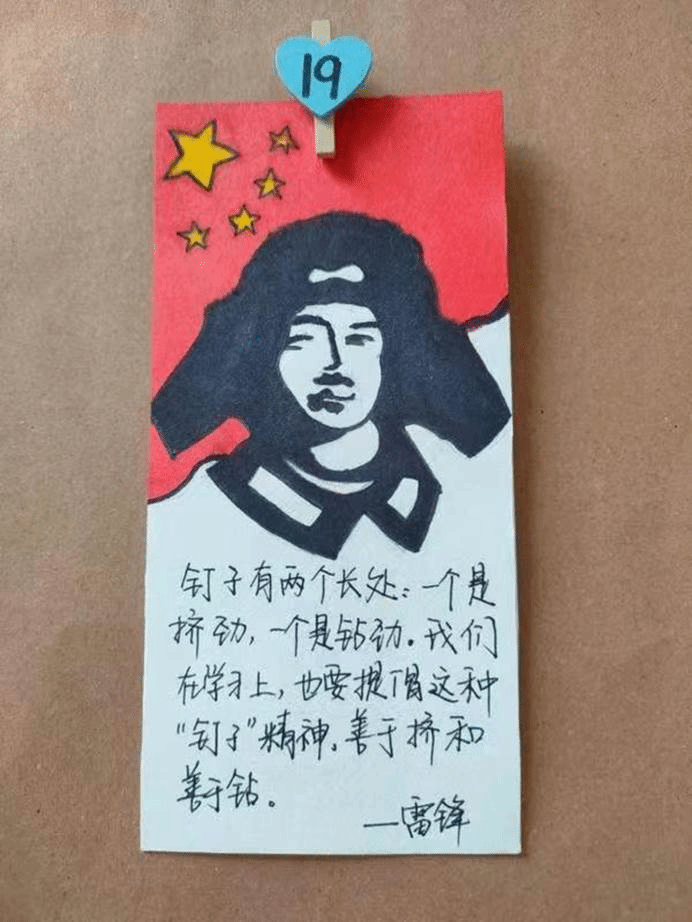 19
钉子有两个长处：一个是
挤劲，一个是钻劲。我们
在学习上，也要提倡这种
“钉子”精神，善于挤和
善于钻。
—雷锋